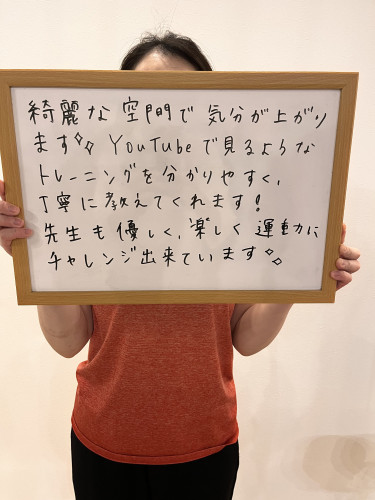 綺麗な空間で気分が上がり
ます✧✧ YouTubeで見るような
トレーニングを分かりやすく、
丁寧に教えてくれます!
先生も優しく、楽しく運動に
チャレンジ出来ています✧✧